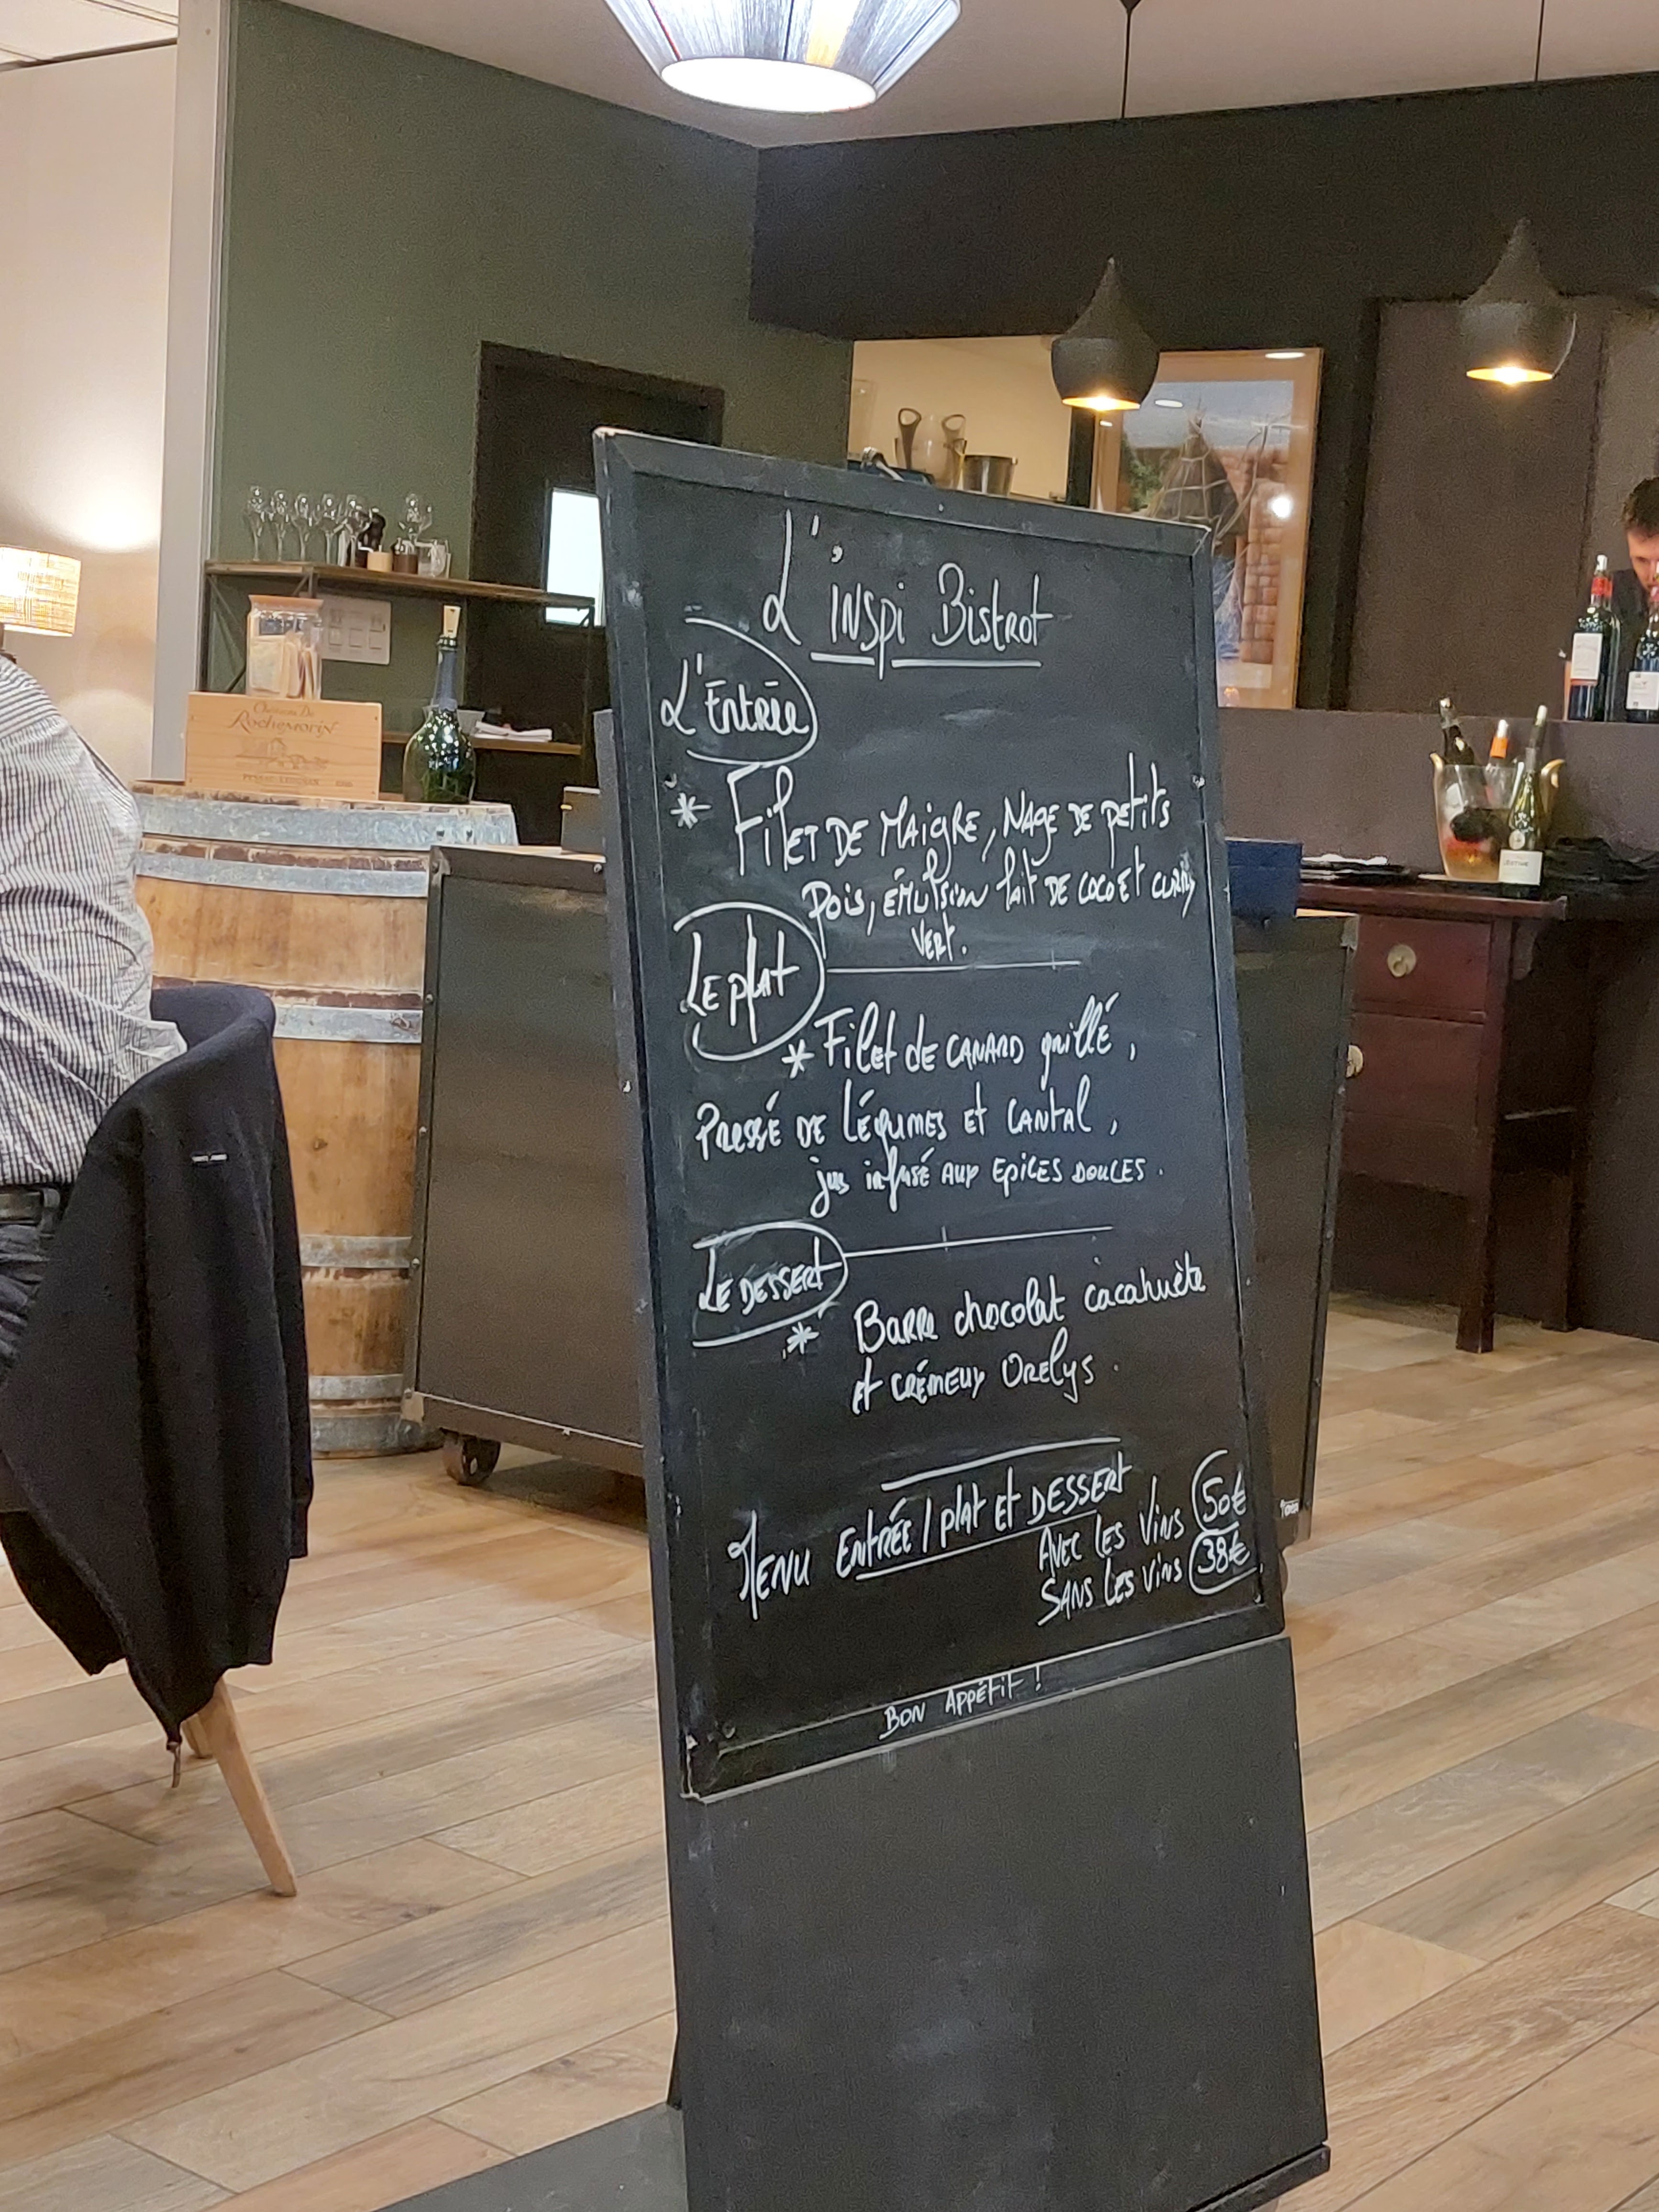 L'inspi Bistrot
L'Entrée
* Filet de Maigre, Nage de petits
pois, émulsion lait de coco et curry
vert.
Le plat
* Filet de canard grillé,
Pressé de légumes et cantal,
jus infusé aux épices douces.
Le dessert
* Barre chocolat cacahuète
et crémeux Orelys.
Menu Entrée / plat et dessert
Avec les vins 50€
Sans les vins 38€
Bon Appétit !
Château De
Rochemorin
Pessac-Léognan